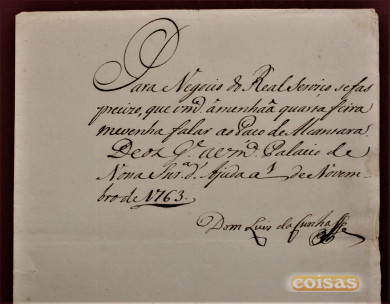 Para Negocio do Real Serviço se fas
preizo, que vmd. âmenhaã quarta feira
me venha falar ao Paço de Alcantara.
Deos Gde. a vmd. Palacio de
Nosa Snra. d' Ajuda a 1 de Novem-
bro de 1763.
Dom Luis da Cunha
coisas